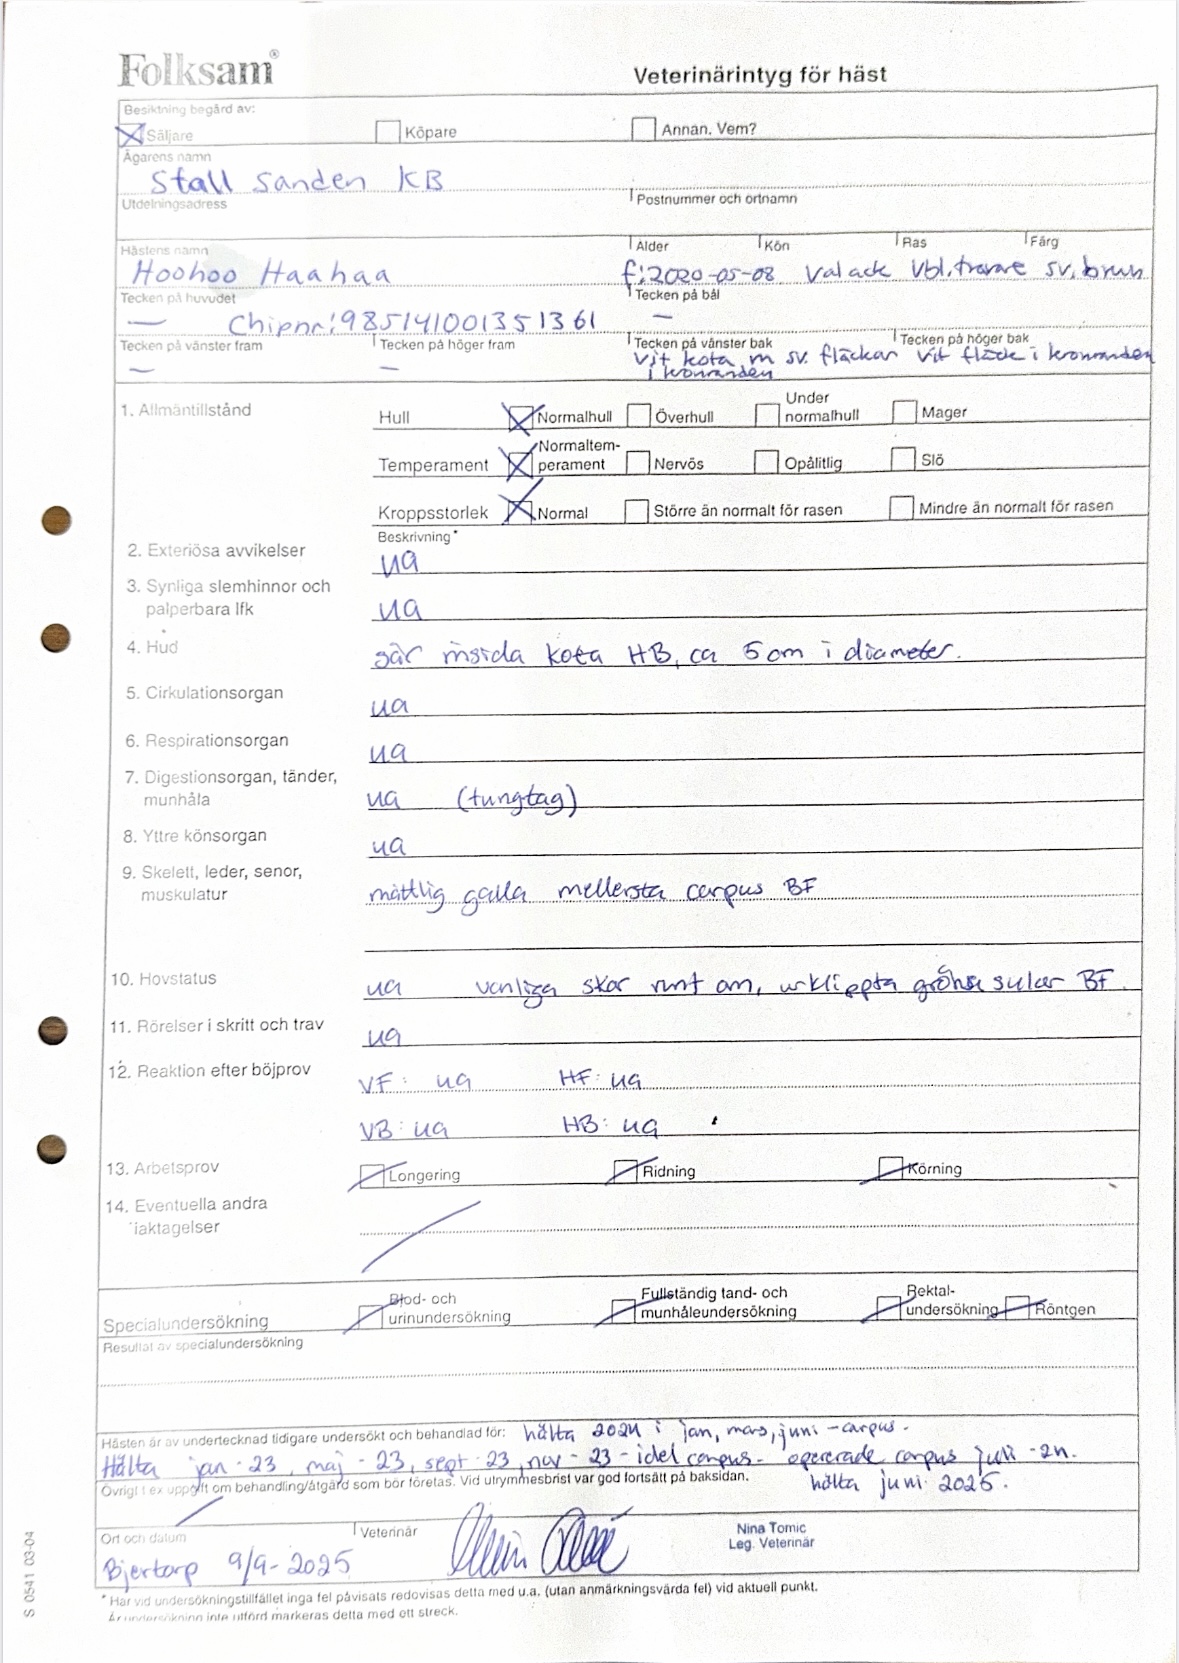 Folksam®
Veterinärintyg för häst
Besiktning begärd av:
Säljare Köpare Annan. Vem?
Ägarens namn
Stall Sanden KB
Utdelningsadress Postnummer och ortnamn
Hästens namn Ålder Kön Ras Färg
Hoohoo Haahaa f:2020-05-08 Valack Vbl.travare sv.brun
Tecken på huvudet Tecken på bål
— Chipnr:985141001351361 —
Tecken på vänster fram Tecken på höger fram Tecken på vänster bak Tecken på höger bak
— — vit kota m sv. fläckar vit fläck i kronranden
i kronranden
1. Allmäntillstånd
Hull Normalhull Överhull Under normalhull Mager
Temperament Normaltem-perament Nervös Opålitlig Slö
Kroppsstorlek Normal Större än normalt för rasen Mindre än normalt för rasen
Beskrivning*
2. Exteriösa avvikelser ua
3. Synliga slemhinnor och
palperbara lfk ua
4. Hud sår insida kota HB, ca 5cm i diameter.
5. Cirkulationsorgan ua
6. Respirationsorgan ua
7. Digestionsorgan, tänder,
munhåla ua (tungtag)
8. Yttre könsorgan ua
9. Skelett, leder, senor,
muskulatur måttlig galla mellersta carpus BF
10. Hovstatus ua vanliga skor runt om, urklippta gröna sulor BF.
11. Rörelser i skritt och trav ua
12. Reaktion efter böjprov VF: ua HF: ua
VB: ua HB: ua
13. Arbetsprov Longering Ridning Körning
14. Eventuella andra
iaktagelser
Specialundersökning Blod- och urinundersökning Fullständig tand- och munhåleundersökning Rektal-undersökning Röntgen
Resultat av specialundersökning
Hästen är av undertecknad tidigare undersökt och behandlad för: hälta 2024 i jan, mars, juni - carpus.
Hälta jan-23, maj-23, sept-23, nov-23 - idel carpus. opererade carpus juli -24.
Övrigt t ex uppgift om behandling/åtgärd som bör företas. Vid utrymmesbrist var god fortsätt på baksidan. hälta juni 2025.
Ort och datum Veterinär
Bjertorp 9/9-2025
Nina Tomic
Leg. Veterinär
* Har vid undersökningstillfället inga fel påvisats redovisas detta med u.a. (utan anmärkningsvärda fel) vid aktuell punkt.
Är undersökning inte utförd markeras detta med ett streck.
S 0541 03-04